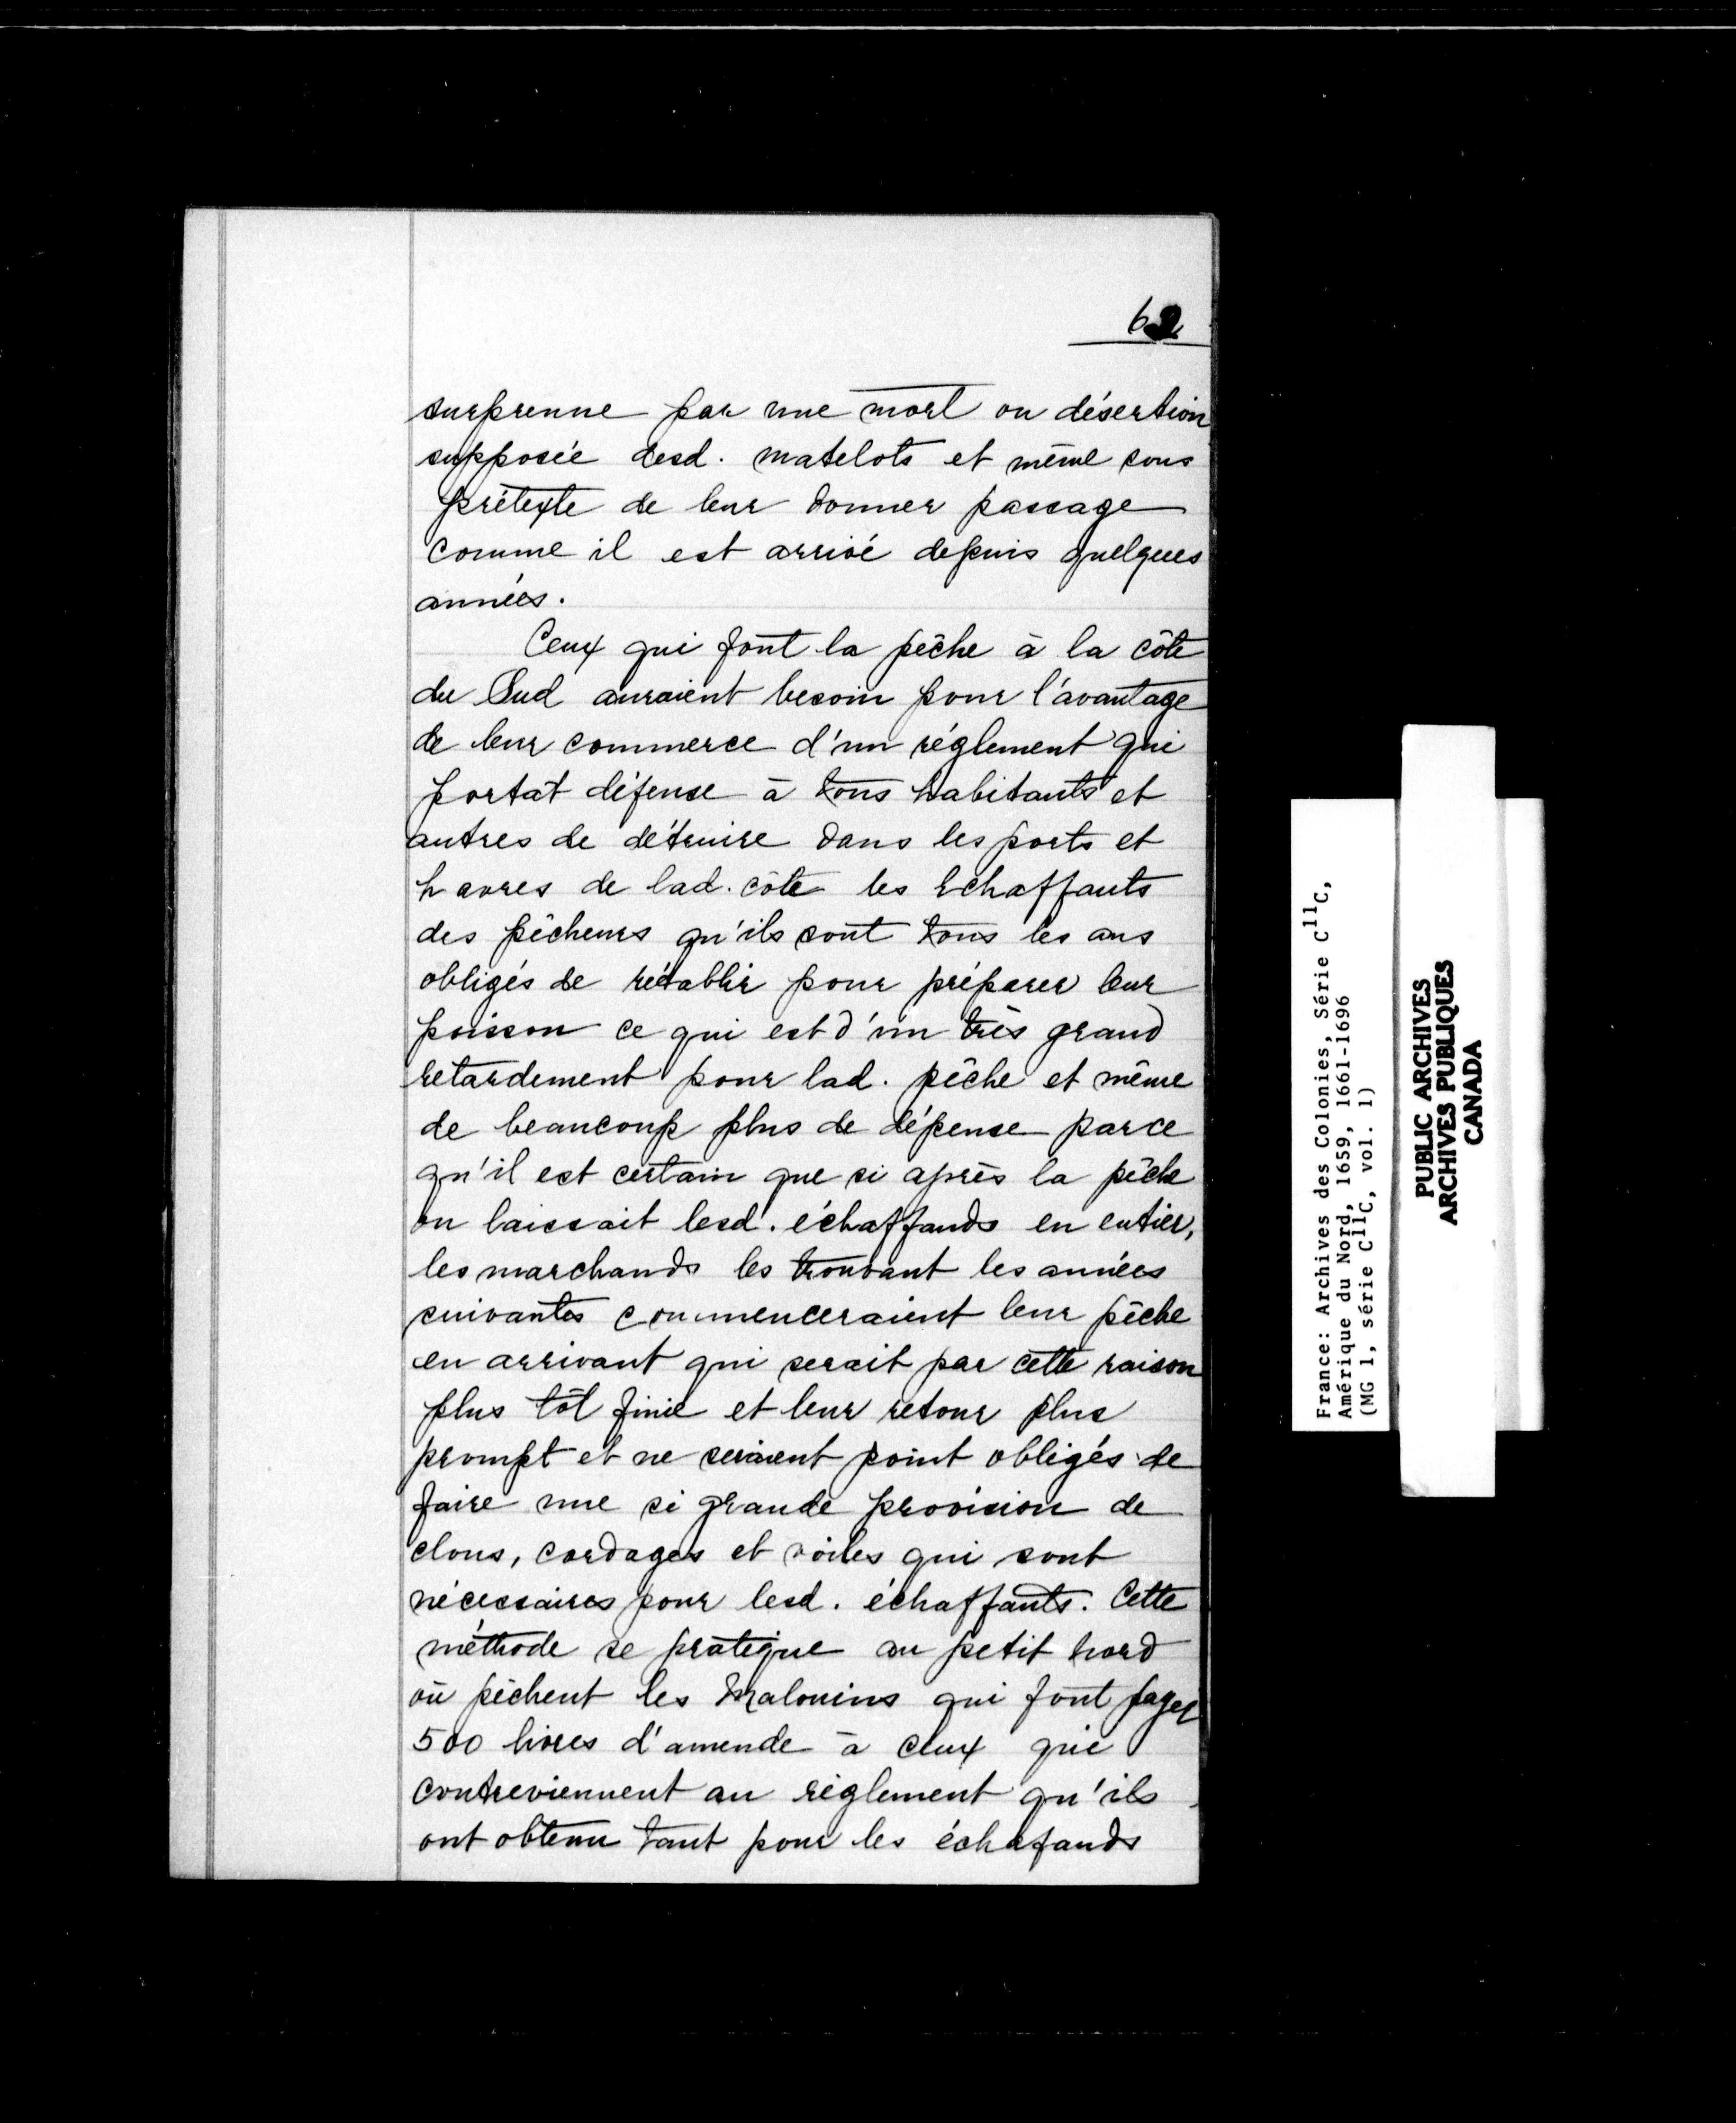 62
surprenne par une mort ou désertion
supposée desd. matelots et même sous
prétexte de leur donner passage
comme il est arrivé depuis quelques
années.
Ceux qui font la pêche à la côte
du Sud auraient besoin pour l'avantage
de leur commerce d'un réglement qui
portât défense à tous habitants et
autres de détruire dans les ports et
havres de lad. côte les échaffauts
des pêcheurs qu'ils sont tous les ans
obligés de rétablir pour préparer leur
poisson ce qui est d'un très grand
retardement pour lad. pêche et même
de beaucoup plus de dépense parce
qu'il est certain que si après la pêche
on laissait lesd. échaffauds en entier,
les marchands les trouvant les années
suivantes commenceraient leur pêche
en arrivant qui serait par cette raison
plus tôt finie et leur retour plus
prompt et ne seraient point obligés de
faire une si grande provision de
clous, cordages et voiles qui sont
nécessaires pour lesd. échaffauts. Cette
méthode se pratique au petit nord
où pêchent les Malouins qui font payer
500 livres d'amende à ceux qui
contreviennent au réglement qu'ils
ont obtenu tant pour les échafauds
France: Archives des Colonies, Série C11C,
Amérique du Nord, 1659, 1661-1696
(MG 1, série C11C, vol. 1)
PUBLIC ARCHIVES
ARCHIVES PUBLIQUES
CANADA